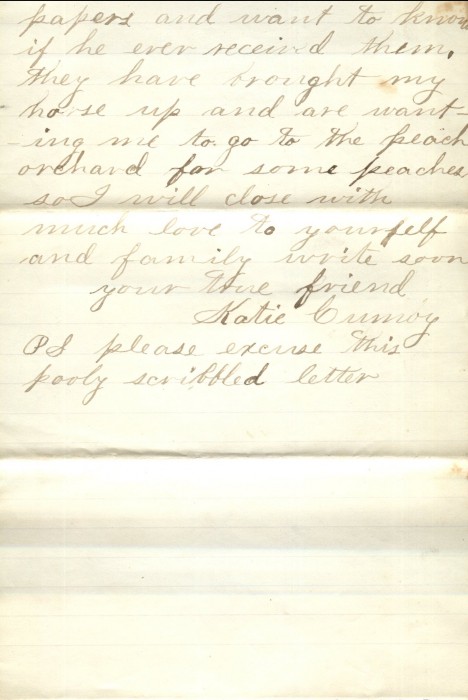 papers and want to know
if he ever received them,
they have brought my
horse up and are want-
-ing me to go to the peach
orchard for some peaches
so I will close with
much love to yourself
and family write soon
your true friend
Katie
PS please excuse this
pooly scribbled letter